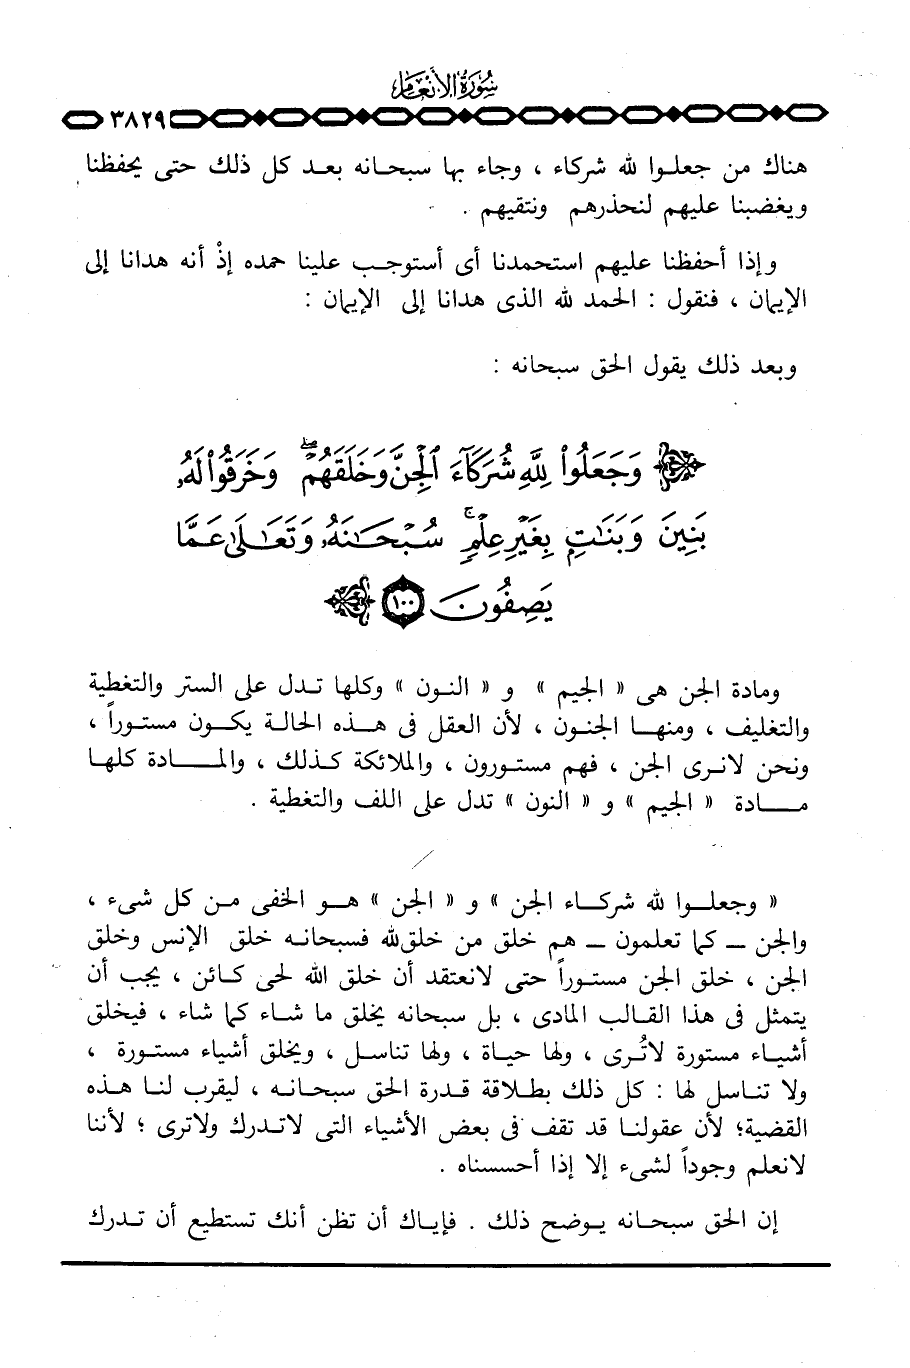 سُورَةُ الأَنْعَامِ
٣٨٢٩
هناك من جعلوا لله شركاء ، وجاء بها سبحانه بعد كل ذلك حتى يحفظنا
ويغضبنا عليهم لنحذرهم ونتقيهم .
وإذا أحفظنا عليهم استحمدنا أى أستوجب علينا حمده إذْ أنه هدانا إلى
الإيمان ، فنقول : الحمد لله الذى هدانا إلى الإيمان :
وبعد ذلك يقول الحق سبحانه :
وَجَعَلُوا۟ لِلَّهِ شُرَكَآءَ ٱلْجِنَّ وَخَلَقَهُمْ ۖ وَخَرَقُوا۟ لَهُۥ
بَنِينَ وَبَنَٰتٍۭ بِغَيْرِ عِلْمٍ ۚ سُبْحَٰنَهُۥ وَتَعَٰلَىٰ عَمَّا
يَصِفُونَ ١٠٠
ومادة الجن هى « الجيم » و « النون » وكلها تدل على الستر والتغطية
والتغليف ، ومنها الجنون ، لأن العقل فى هذه الحالة يكون مستوراً ،
ونحن لانرى الجن ، فهم مستورون ، والملائكة كذلك ، والمادة كلها
مادة « الجيم » و « النون » تدل على اللف والتغطية .
« وجعلوا لله شركاء الجن » و « الجن » هو الخفى من كل شىء ،
والجن – كما تعلمون – هم خلق من خلق لله فسبحانه خلق الإنس وخلق
الجن ، خلق الجن مستوراً حتى لانعتقد أن خلق الله لحى كائن ، يجب أن
يتمثل فى هذا القالب المادى ، بل سبحانه يخلق ما شاء كما شاء ، فيخلق
أشياء مستورة لاتُرى ، ولها حياة ، ولها تناسل ، ويخلق أشياء مستورة ،
ولا تناسل لها : كل ذلك بطلاقة قدرة الحق سبحانه ، ليقرب لنا هذه
القضية؛ لأن عقولنا قد تقف فى بعض الأشياء التى لاتدرك ولاترى ؛ لأننا
لانعلم وجوداً لشىء إلا إذا أحسسناه .
إن الحق سبحانه يوضح ذلك . فإياك أن تظن أنك تستطيع أن تدرك